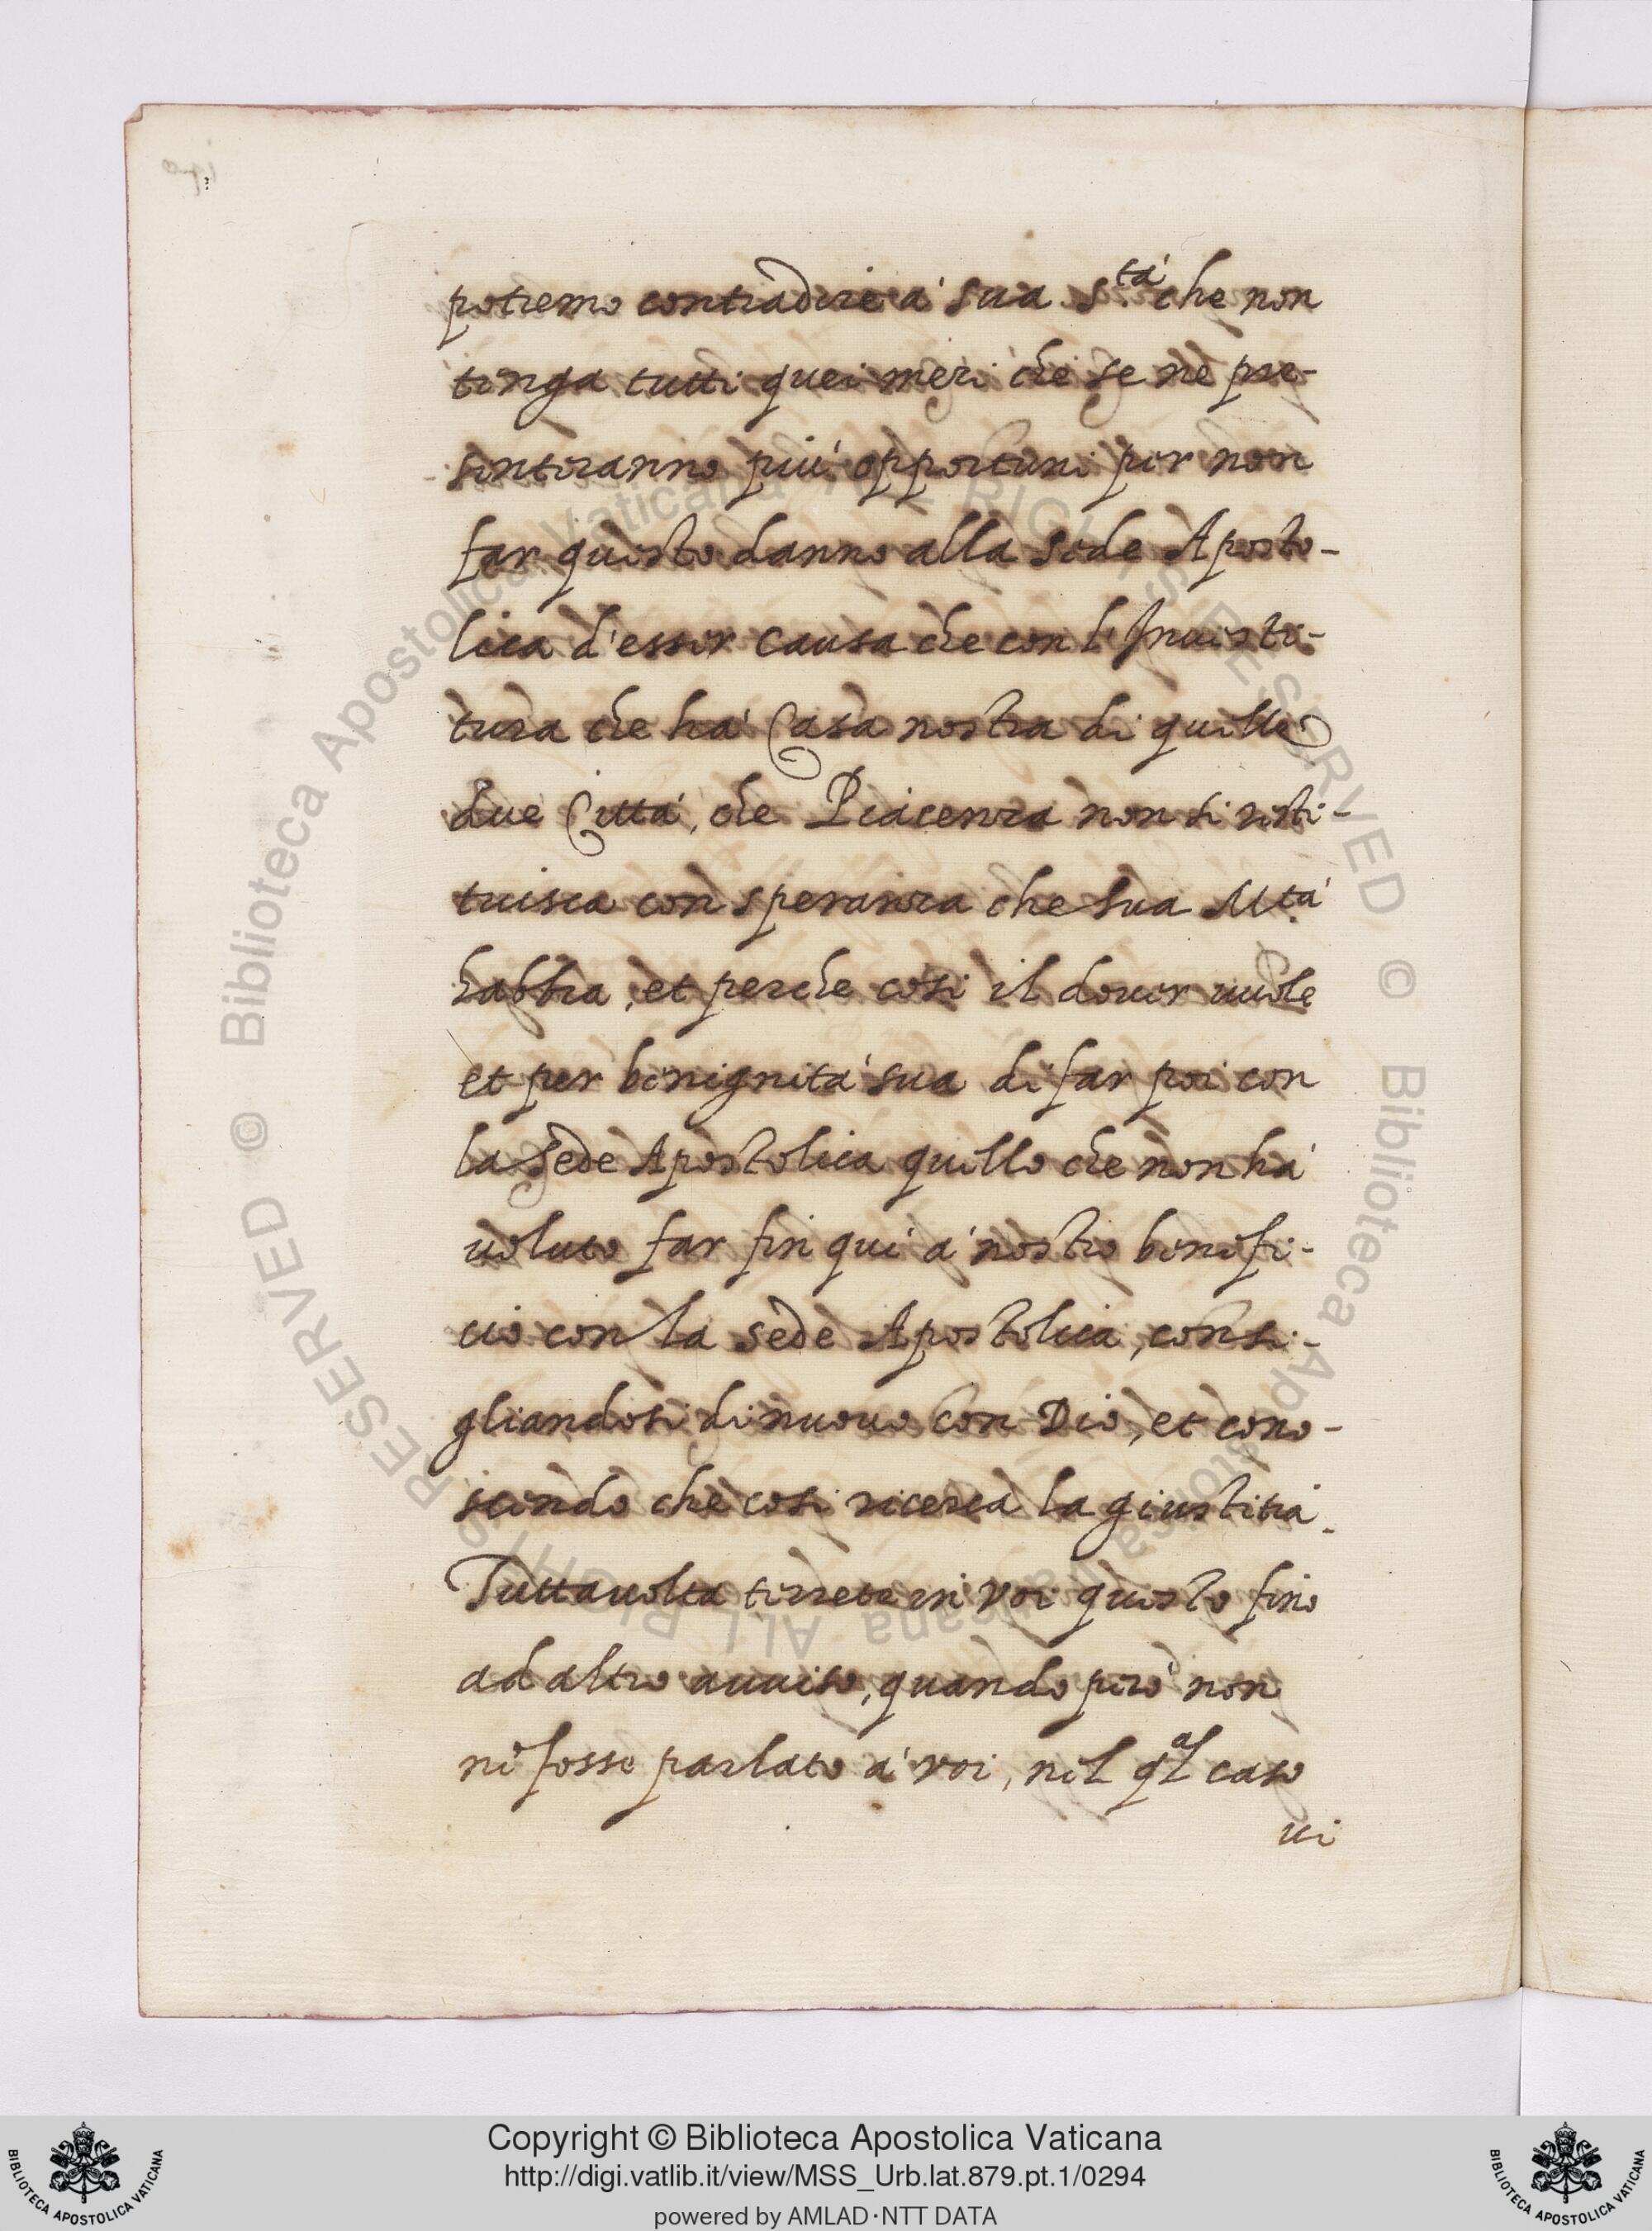 potremo contradire à sua S.tà che non
tenga tutti quei mezi che se ne pre-
senteranno più opportuni per non
far questo danno alla sede Aposto-
lica d'esser causa che con l'Inuesti-
tura che hà Casa nostra di quelle
due Città, che Piacenza non si resti-
tuisca con speranza che sua M.tà
habbia, et perche cosi il douer uuole
et per benignità sua di far poi con
la Sede Apostolica quello che non hà
uoluto far fin qui à nostro benefi-
cio con la sede Apostolica, consi-
gliandosi di nuouo con Dio, et cono-
scendo che cosi ricerca la giustitia.
Tuttauolta terrete in voi questo fino
ad altro auuiso, quando però non
ne fosse parlato à voi, nel q.al caso
ui
© Biblioteca Apostolica Vaticana ALL RIGHTS RESERVED © Biblioteca Apostolica Vaticana ALL RIGHTS RESERVED
Copyright © Biblioteca Apostolica Vaticana
http://digi.vatlib.it/view/MSS_Urb.lat.879.pt.1/0294
powered by AMLAD·NTT DATA
BIBLIOTECA APOSTOLICA VATICANA
BIBLIOTECA APOSTOLICA VATICANA